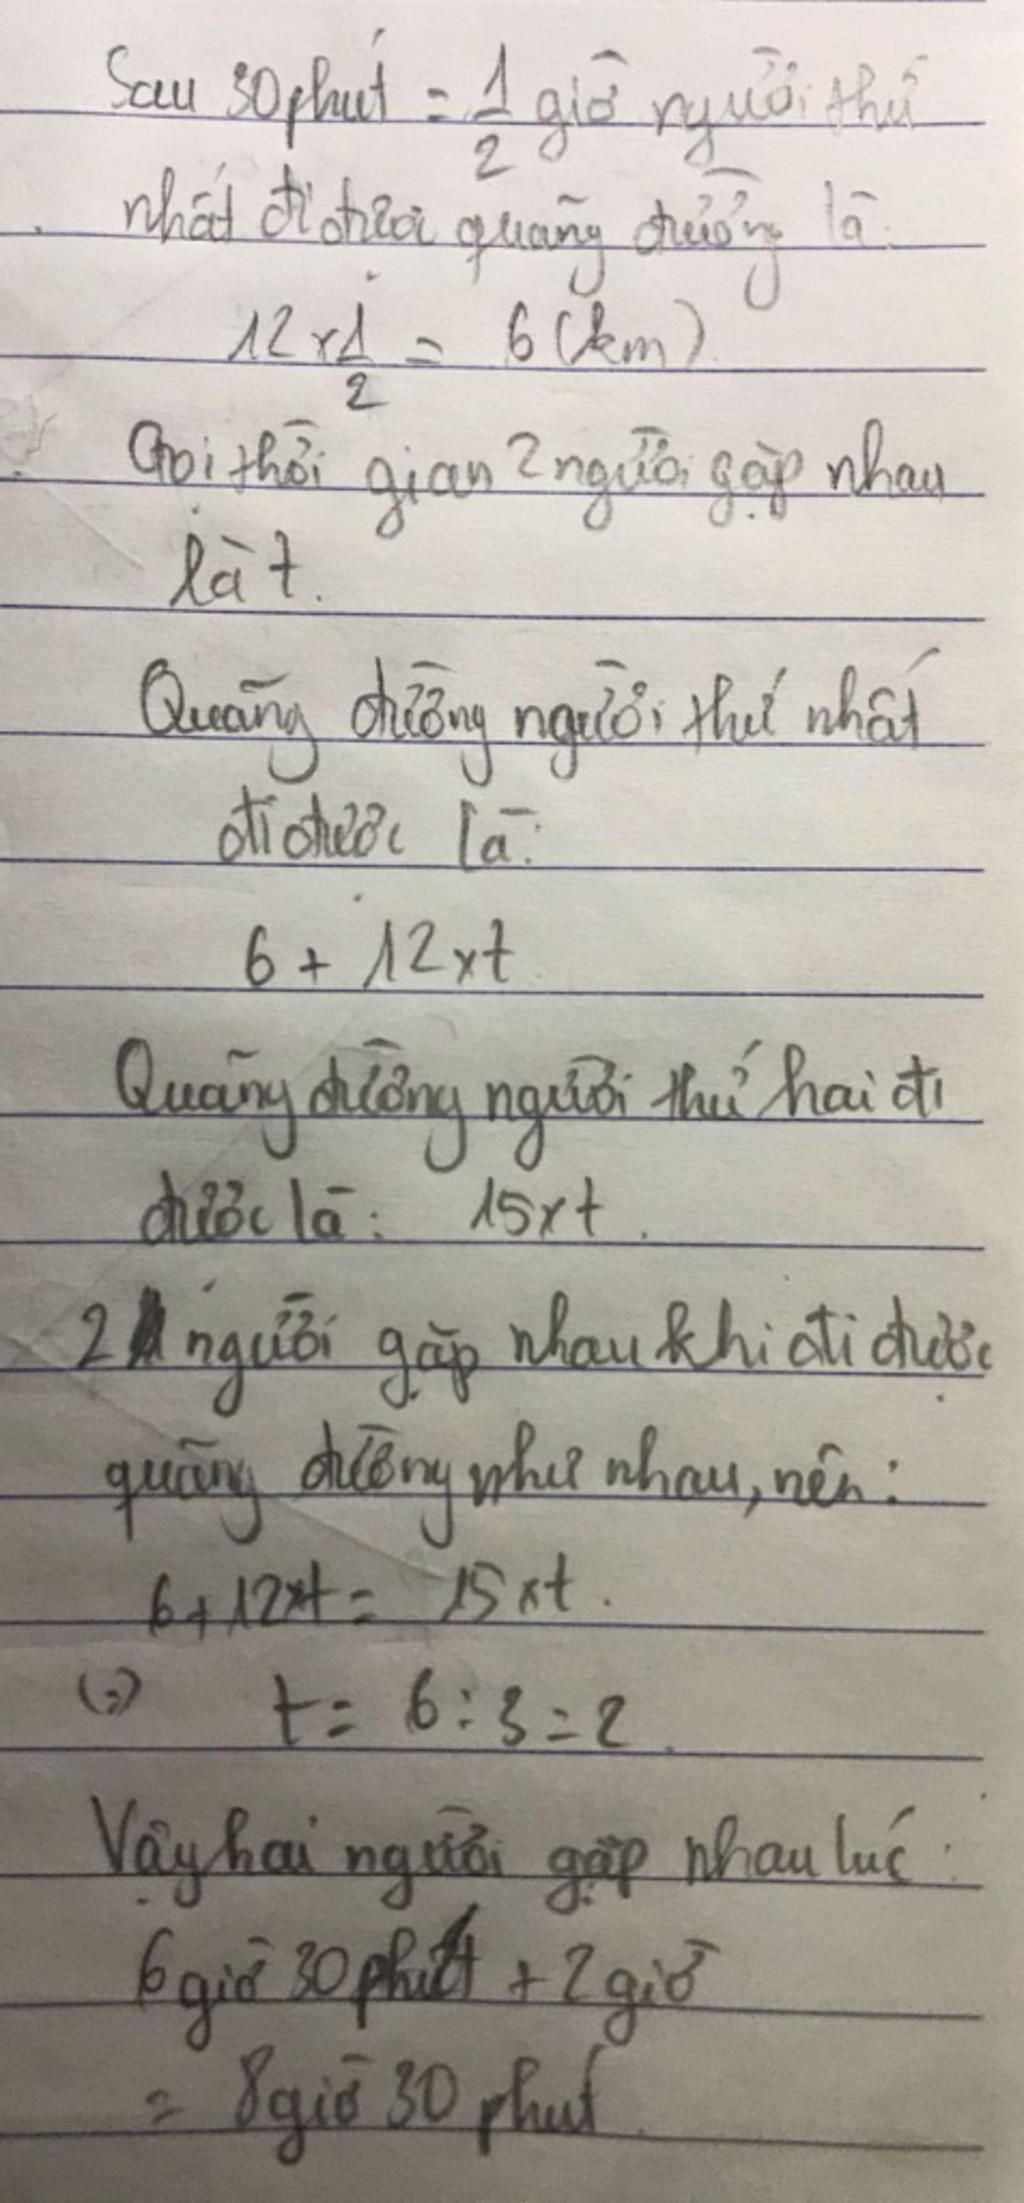 Sau 30 phút = 1/2 giờ người thứ
nhất đi được quãng đường là
12 x 1/2 = 6 (km)
Gọi thời gian 2 người gặp nhau
là t.
Quãng đường người thứ nhất
đi được là:
6 + 12 x t
Quãng đường người thứ hai đi
được là: 15 x t.
2 người gặp nhau khi đi được
quãng đường như nhau, nên:
6 + 12 x t = 15 x t.
(=) t = 6 : 3 = 2.
Vậy hai người gặp nhau lúc:
6 giờ 30 phút + 2 giờ
= 8 giờ 30 phút